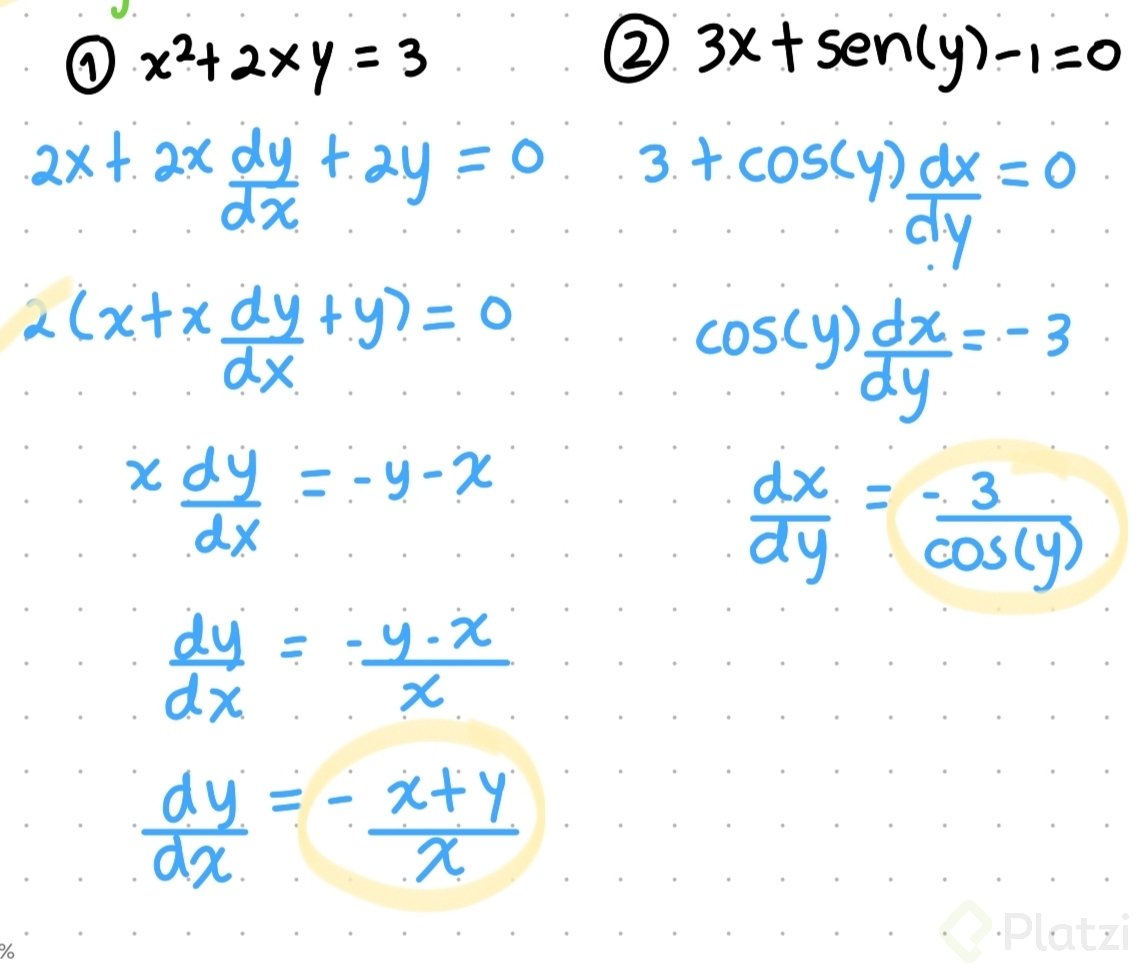 ① x²+2xy = 3
2x + 2x dy/dx + 2y = 0
2(x+x dy/dx +y) = 0
x dy/dx = -y-x
dy/dx = -y-x/x
dy/dx = - x+y/x
② 3x+sen(y)-1=0
3+cos(y) dx/dy = 0
cos(y) dx/dy = -3
dx/dy = - 3/cos(y)
%
Platzi